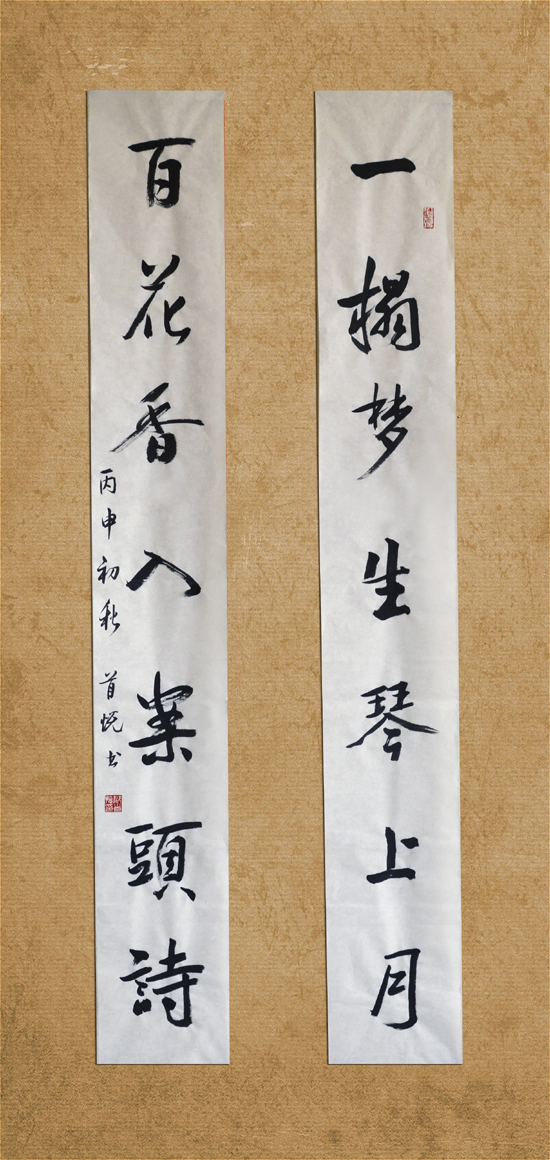 一榻梦生琴上月
百花香入案頭詩
丙申初秋 首悦书